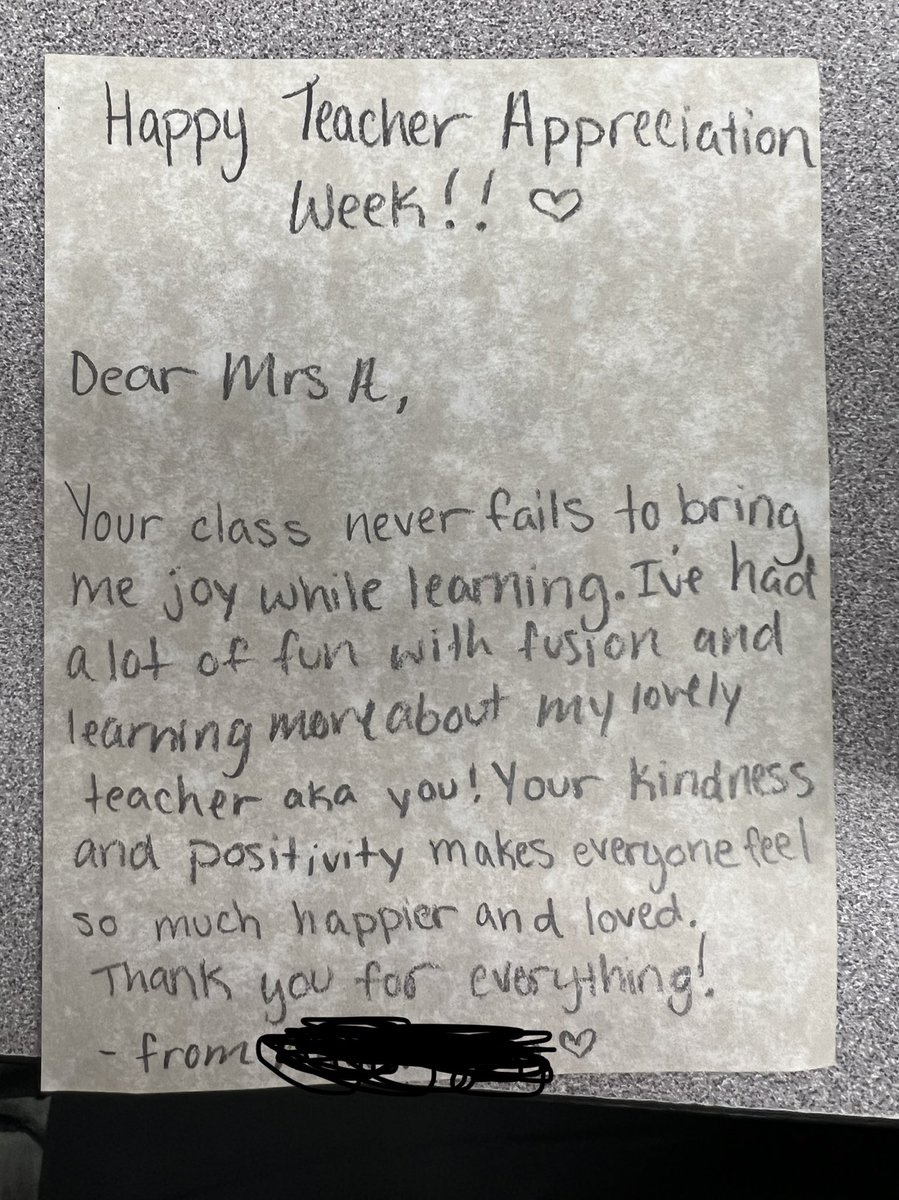 Happy Teacher Appreciation
Week!! ♡
Dear Mrs A,
Your class never fails to bring
me joy while learning. I've had
a lot of fun with fusion and
learning more about my lovely
teacher aka you! Your kindness
and positivity makes everyone feel
so much happier and loved.
Thank you for everything!
- from ♡